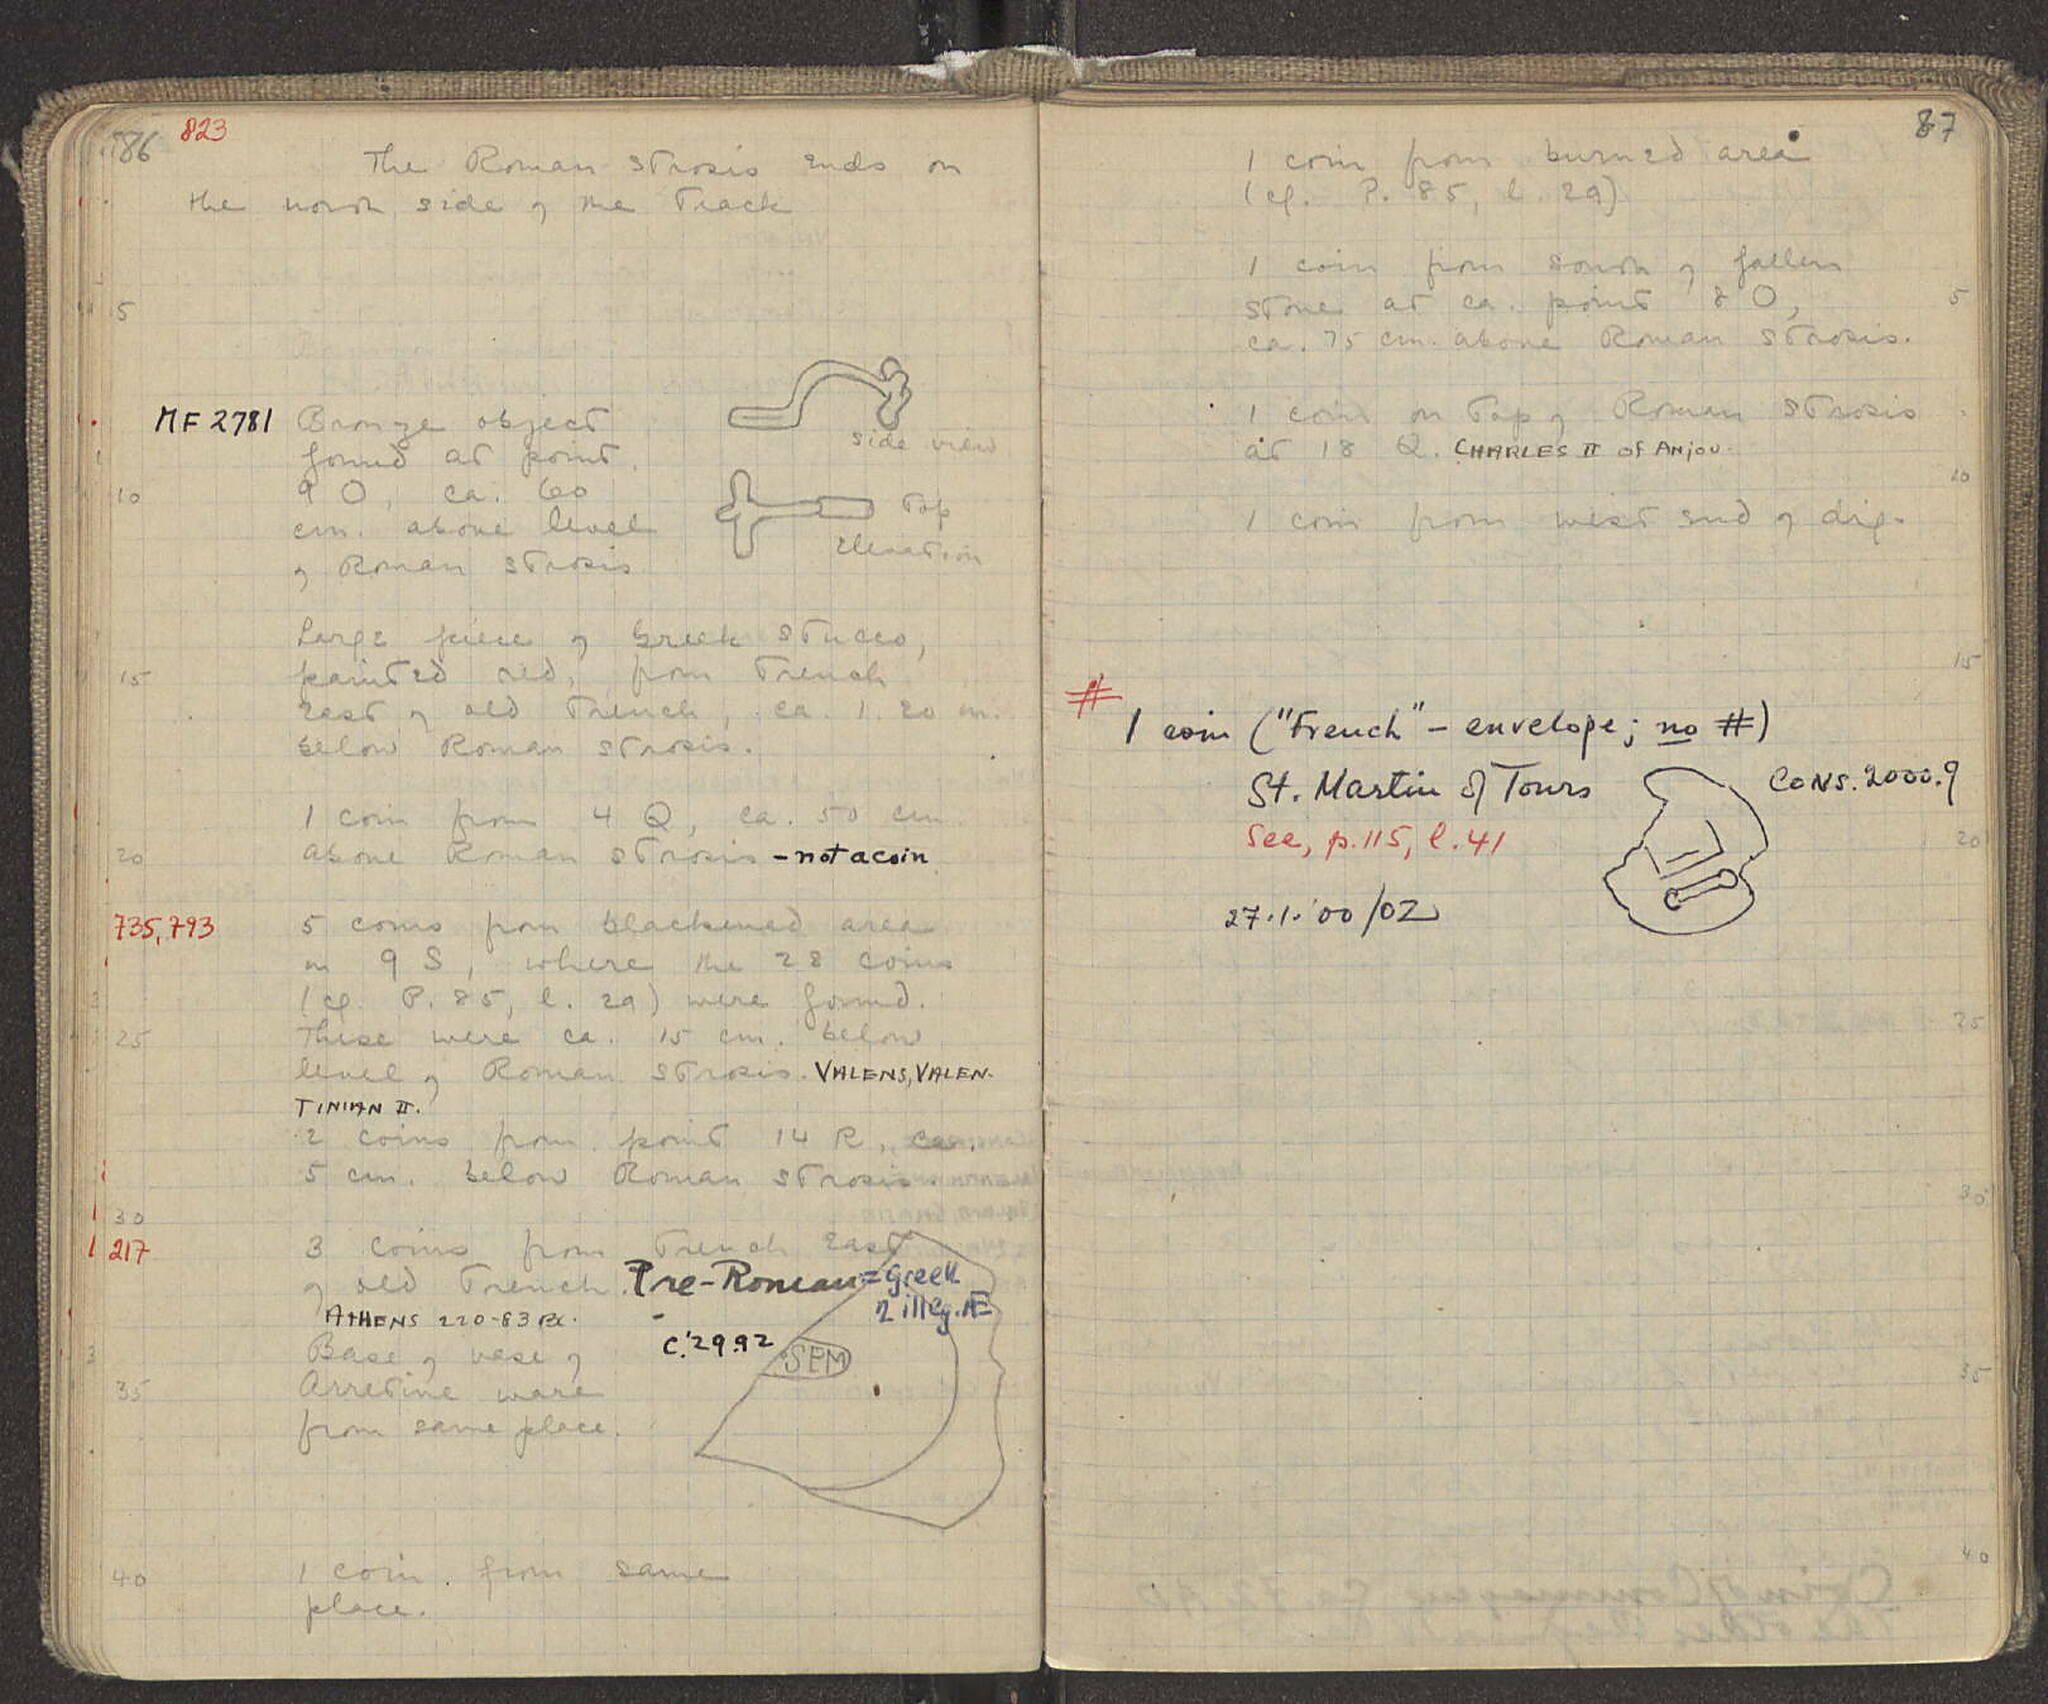 86 823
The Roman strosis ends on
the north side of the track
5
MF 2781 Bronze object
found at point
side view
10 9 O, ca. 60
Top
cm. above level
Elevation
of Roman strosis
Large piece of Greek stucco,
15 painted red, from trench
East of old trench, ca. 1.20 m.
below Roman strosis.
1 coin from 4 Q, ca. 50 cm
20 above Roman strosis - not a coin
735, 793 5 coins from blackened area
in 9 S, where the 28 coins
(cf. P. 85, l. 29) were found.
25 These were ca. 15 cm. below
level of Roman strosis. VALENS, VALEN-
TINIAN II.
2 coins from point 14 R, ca.
5 cm. below Roman strosis
30
217 3 coins from trench East
of old trench. Pre-Roman = Greek
2 illeg. Æ
ATHENS 220-83 BC.
C.29.92
Base of vase of
SEM
35 Arretine ware
from same place.
40 1 coin from same
place.
87
1 coin from burned area
(cf. P. 85, l. 29)
1 coin from south of fallen
stone at ca. point 8 O, 5
ca. 75 cm. above Roman strosis.
1 coin on top of Roman strosis
at 18 Q. CHARLES II OF ANJOU.
10
1 coin from west end of dig.
15
#
1 coin ("French" - envelope; no #)
St. Martin of Tours CONS. 2000.9
See, p. 115, l. 41 20
27.1.'00/OZ
25
30
35
40